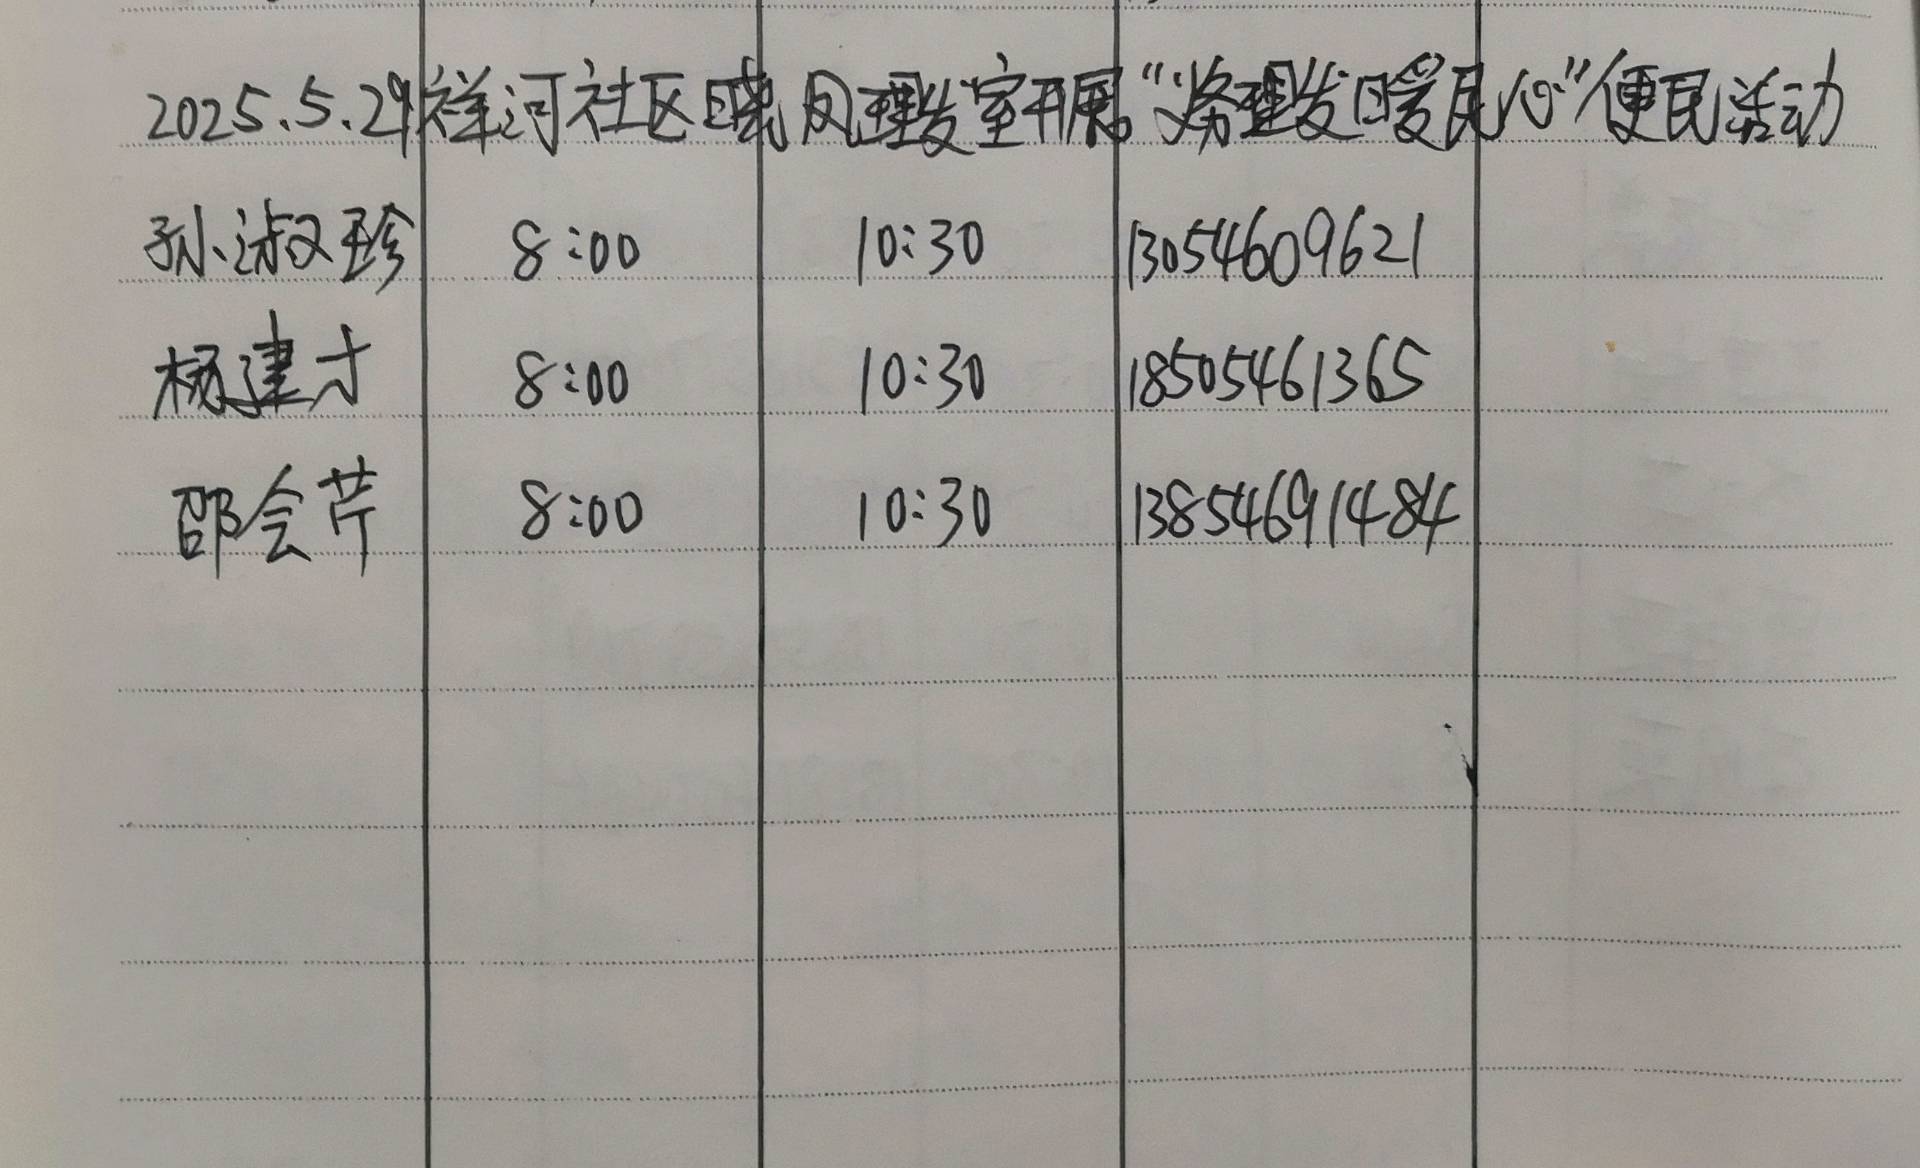 2025.5.29祥河社区晓风理发室开展“义务理发日暖民心”便民活动
孙淑珍 8:00 10:30 13054609621
杨建才 8:00 10:30 18505461365
邵会芹 8:00 10:30 13854691484